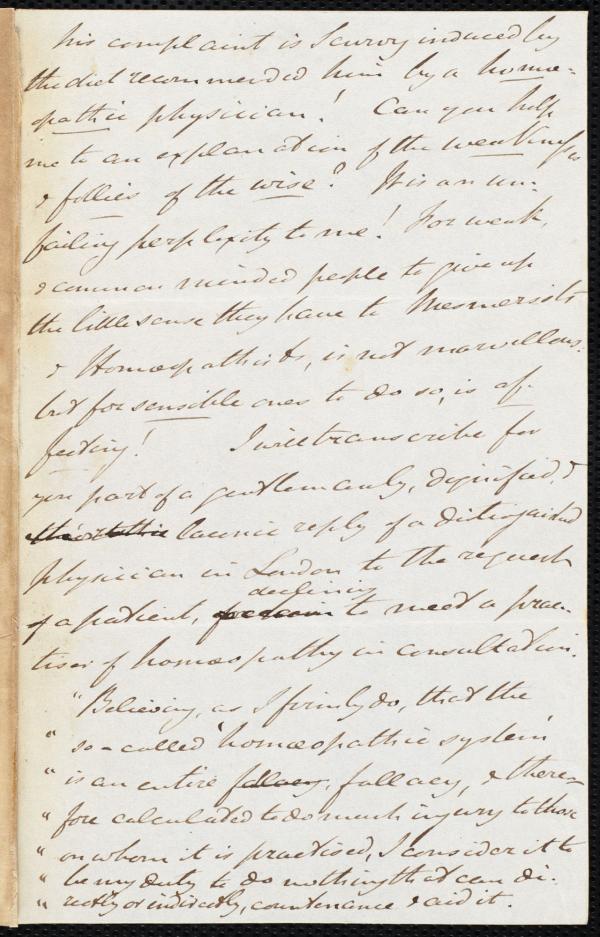 his complaint is Scurvy induced by
the diet recommended him by a homœ-
opathic physician! Can you help
me to an explanation of the weaknesses
& follies of the wise? It is an un-
failing perplexity to me! For weak,
& common minded people to give up
the little sense they have to Mesmerists
& Homœopathists, is not marvellous:
but for sensible ones to do so, is af-
fecting! I will transcribe for
you part of a gentlemanly, dignified, &
laconic reply of a distinguished
physician in London to the request
declining
of a patient, to meet a prac-
tiser of homœopathy in consultation.
"Believing, as I firmly do, that the
" so-called 'homœopathic system'
" is an entire fallacy, fallacy, & there-
" fore calculated to do much injury to those
" on whom it is practised, I consider it to
" be my duty to do nothing that can di-
" rectly or indirectly, countenance & aid it.